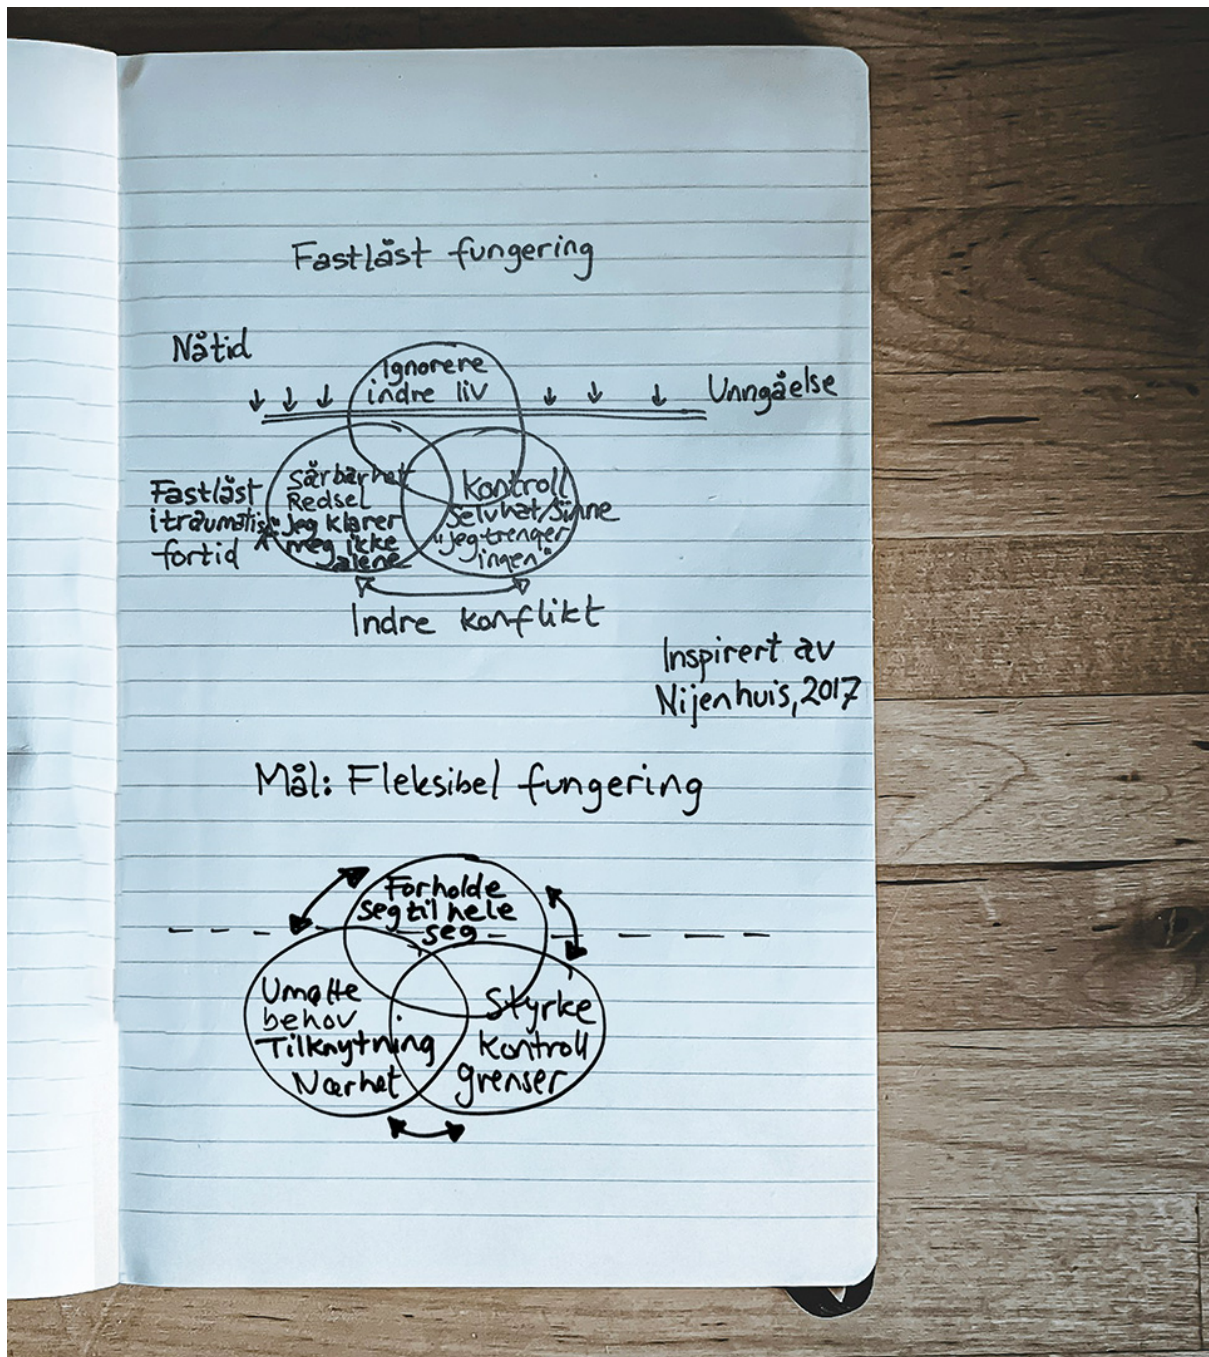 Fastlåst fungering
Nåtid
Ignorere
indre liv
Unngåelse
Fastlåst
i traumatisk
fortid
Sårbarhet
Redsel
"Jeg klarer
meg ikke
alene
Kontroll
Selvhat/Sinne
"jeg trenger
ingen"
Indre konflikt
Inspirert av
Nijenhuis, 2017
Mål: Fleksibel fungering
Forholde
seg til hele
seg
Umøtte
behov
Tilknytning
Nærhet
Styrke
Kontroll
grenser